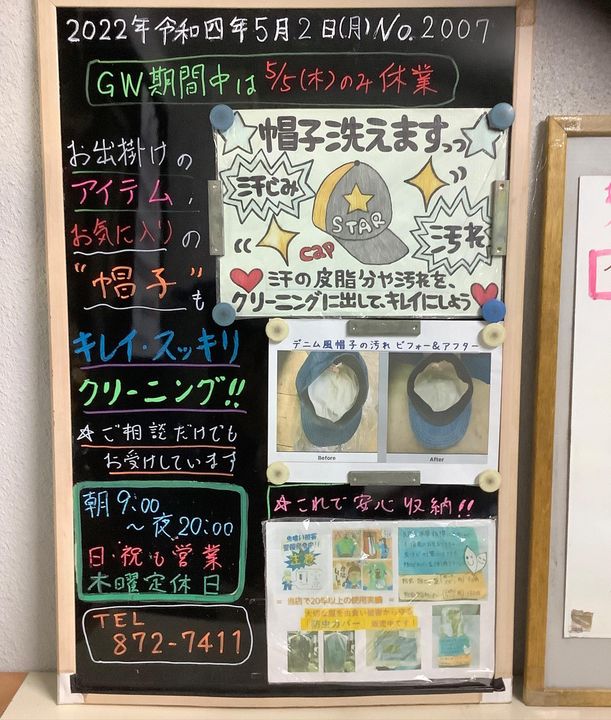 2022年令和四年5月2日(月)No.2007
GW期間中は5/5(木)のみ休業
お出掛けの
アイテム、
お気に入りの
"帽子"も
キレイ・スッキリ
クリーニング!!
☆ご相談だけでも
お受けしています
朝9:00
～夜20:00
日・祝も営業
木曜定休日
TEL
872-7411
帽子洗えますっっ
汗じみ
STAR
cap
汚れ
汗の皮脂分や汚れを、
クリーニングに出して、キレイにしよう
デニム風帽子の汚れ ビフォー&アフター
Before
After
☆これで安心収納!!
虫喰い被害
注意
当店で20年以上の使用実績
大切な服を虫食い被害から守る
「防虫カバー」販売中です!